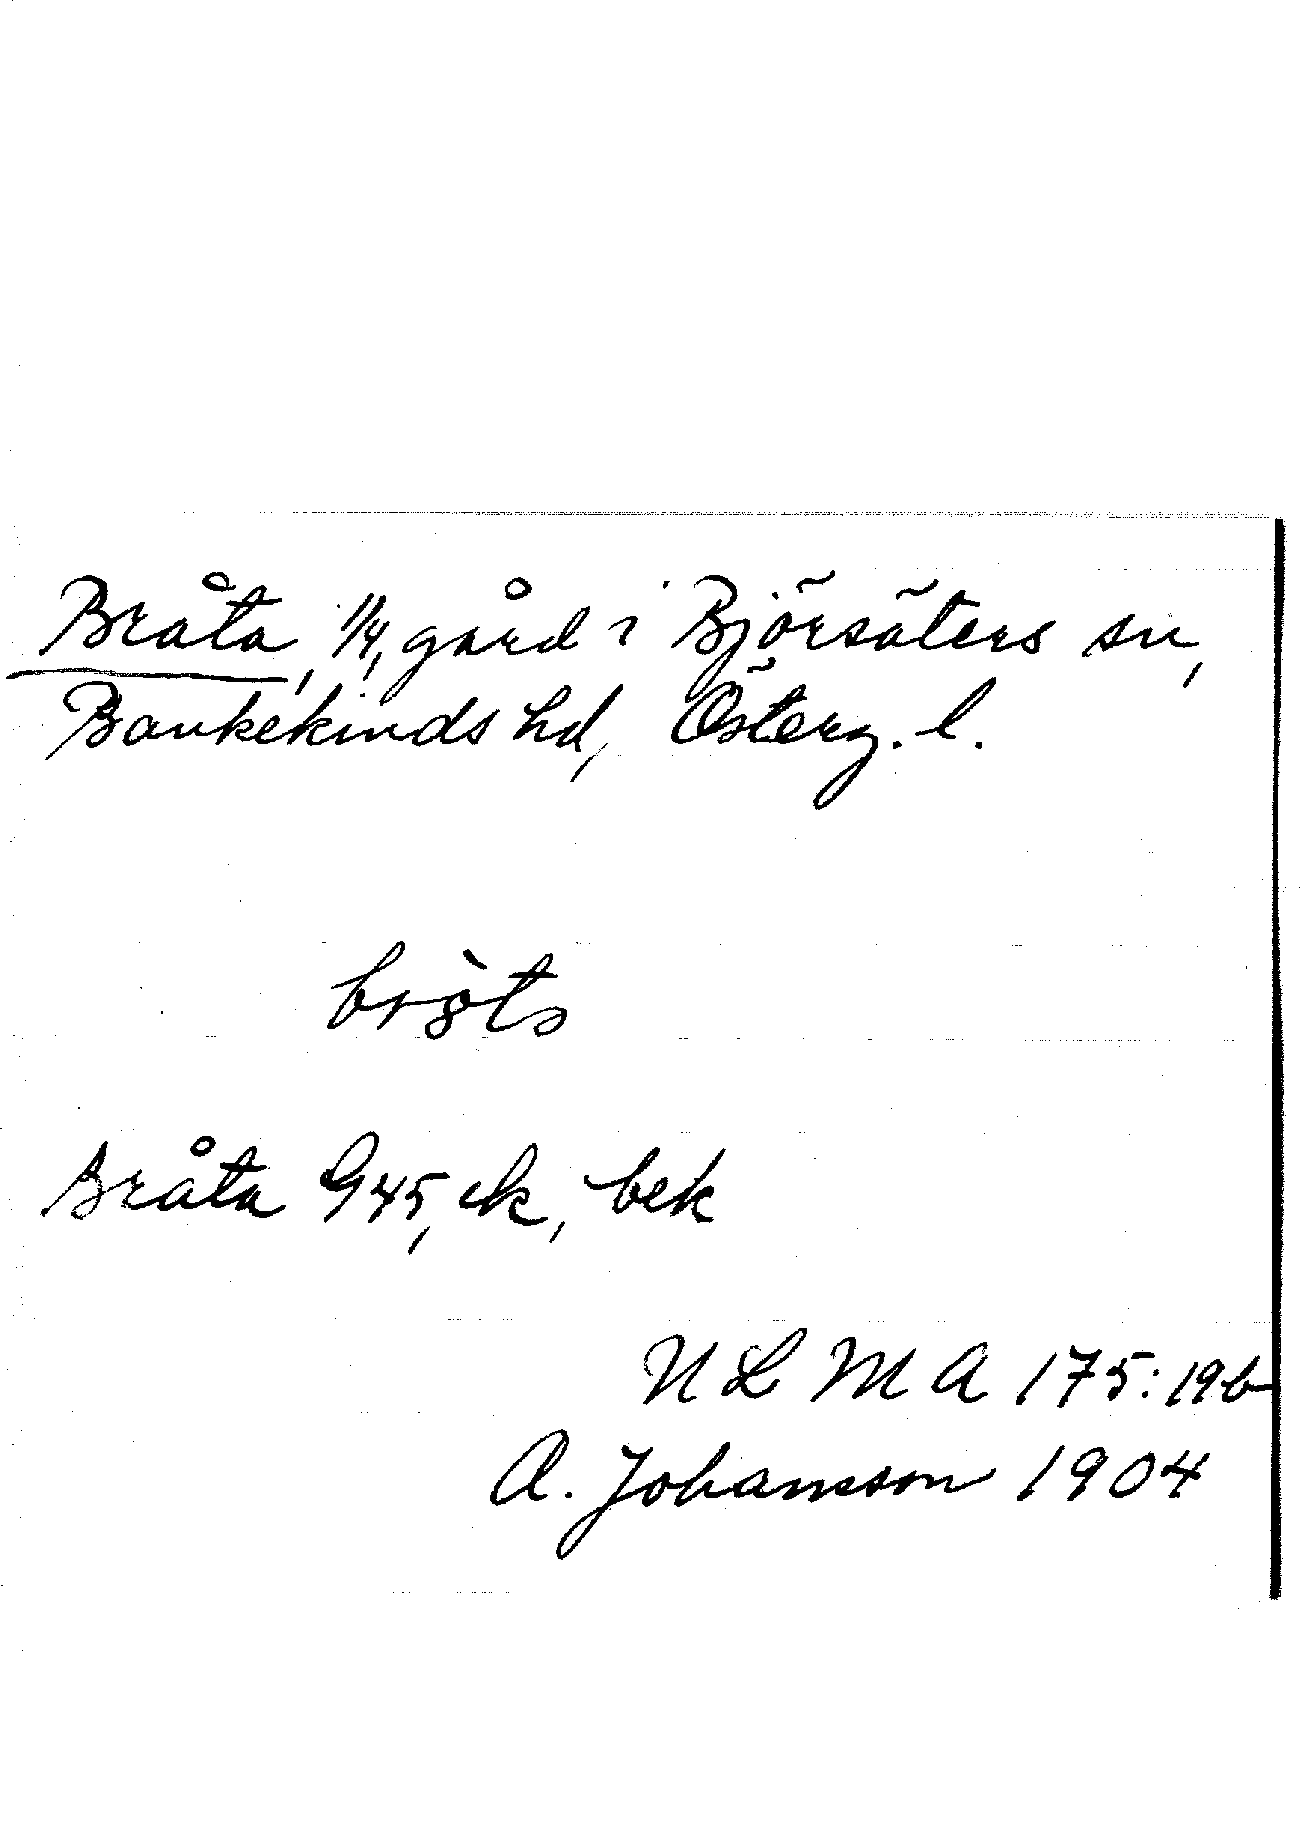 Bråta, 1/4, gård i Björsäters sn,
Bankekinds hd, Österg. l.
Bråta G45, ek, bek
N L M A 175:19b
A. Johansson 1904